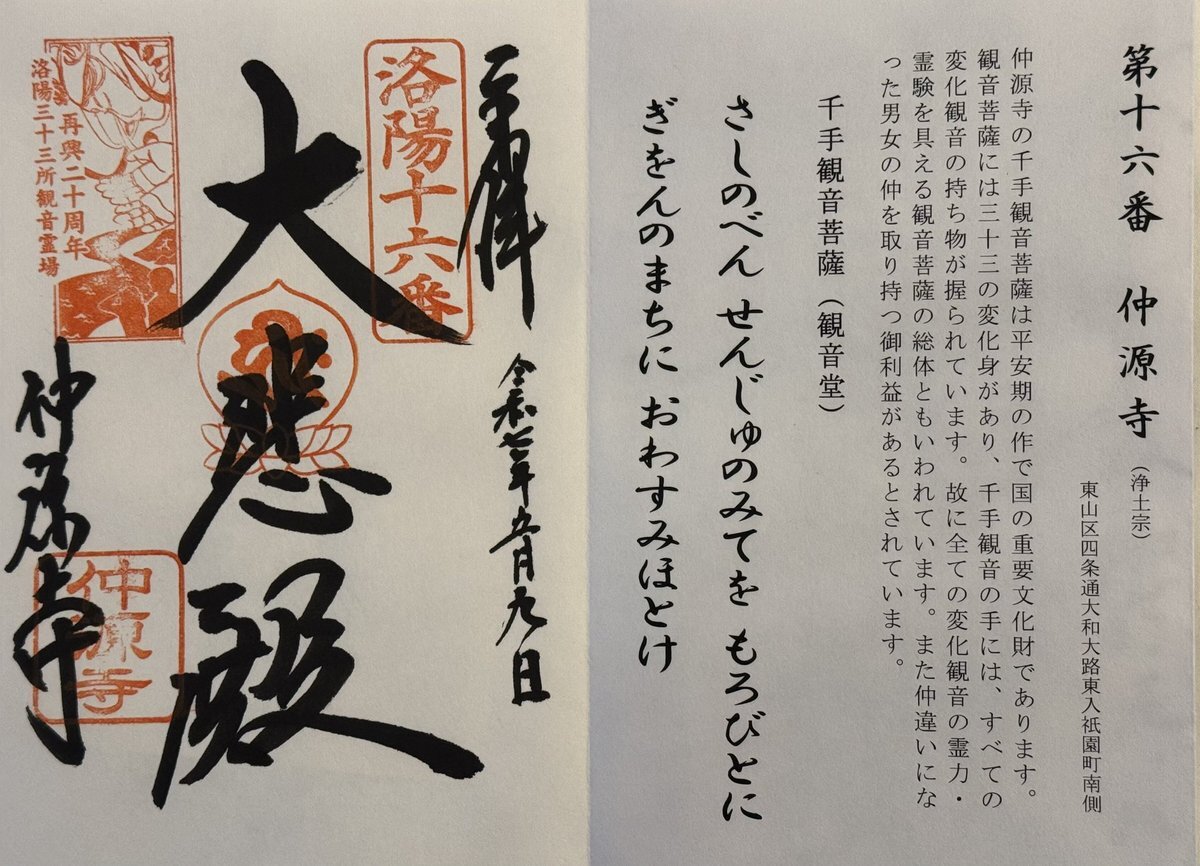 第十六番　仲源寺（浄土宗）
東山区四条通大和大路東入祇園町南側
仲源寺の千手観音菩薩は平安期の作で国の重要文化財であります。
観音菩薩には三十三の変化身があり、千手観音の手には、すべての
変化観音の持ち物が握られています。故に全ての変化観音の霊力・
霊験を具える観音菩薩の総体ともいわれています。また仲違いにな
った男女の仲を取り持つ御利益があるとされています。
千手観音菩薩（観音堂）
さしのべん せんじゅのみてを もろびとに
ぎをんのまちに おわすみほとけ
奉拝
令和七年五月九日
洛陽十六番
大悲殿
再興二十周年
洛陽三十三所観音霊場
仲源寺
仲源寺